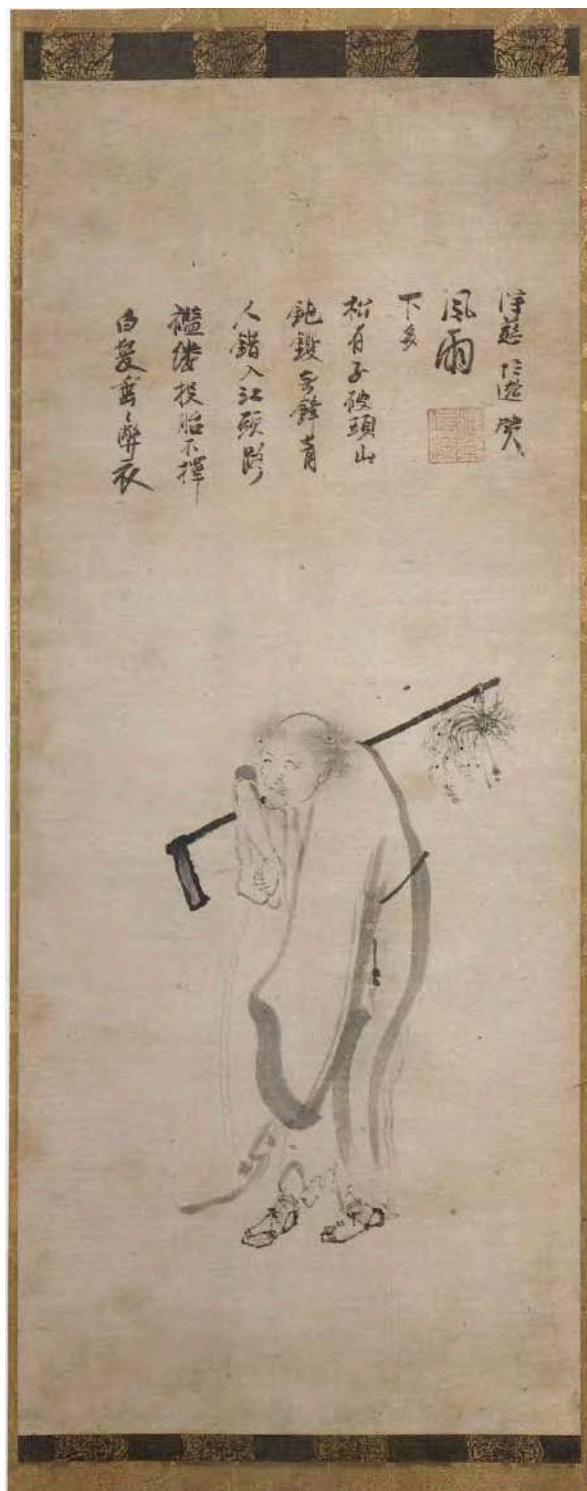 白髮垂〻弊衣
襤褸投胎不擇
人錯入江頭路
鈍钁無鋒青
松有子破頭山
下多
風雨
淨慈